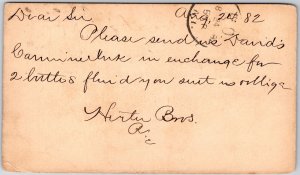 Dear Sir Aug 2nd 82
Please send us David's
Carmine Ink in exchange for
2 bottles fluid you sent us & oblige
Herter Bros.